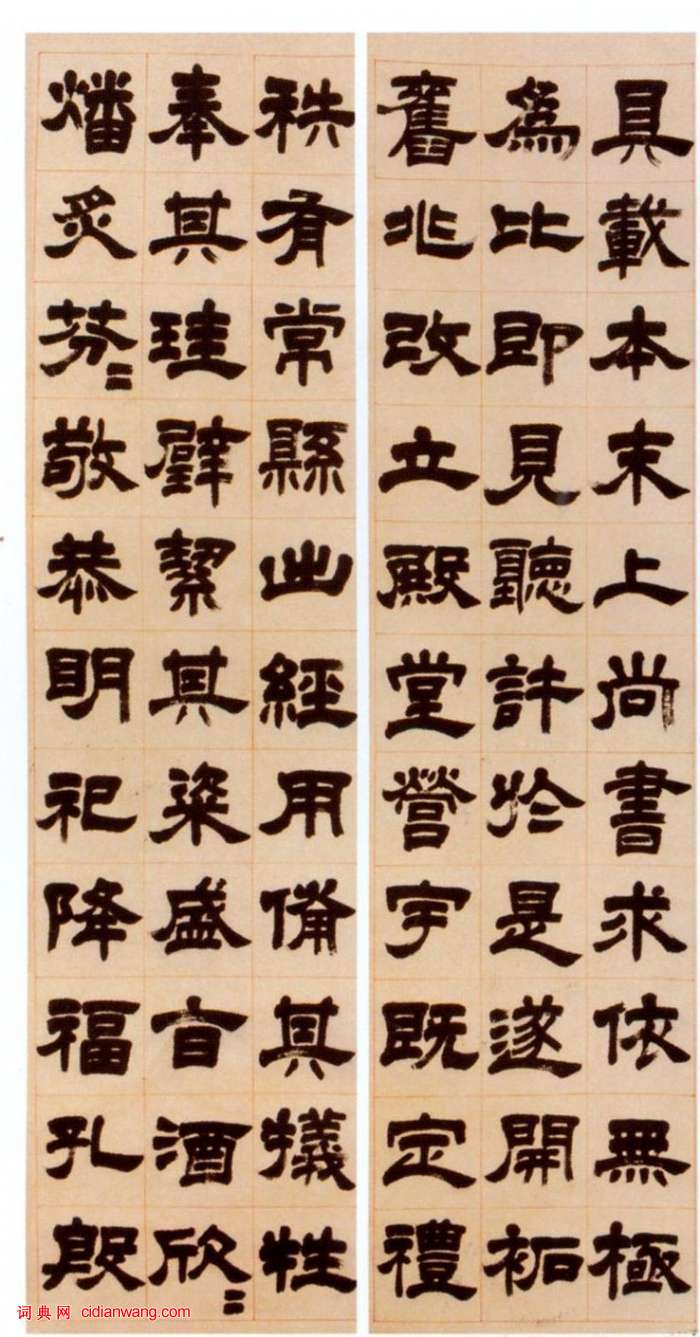 具載本末上尚書求依無極
為比即見聽許於是遂開祏
舊兆改立殿堂營宇既定禮
秩有常縣出經用備其犧牲
奉其珪璧絜其粢盛旨酒欣〻
燔炙芬〻敬恭明祀降福孔殷
词典网 cidianwang.com